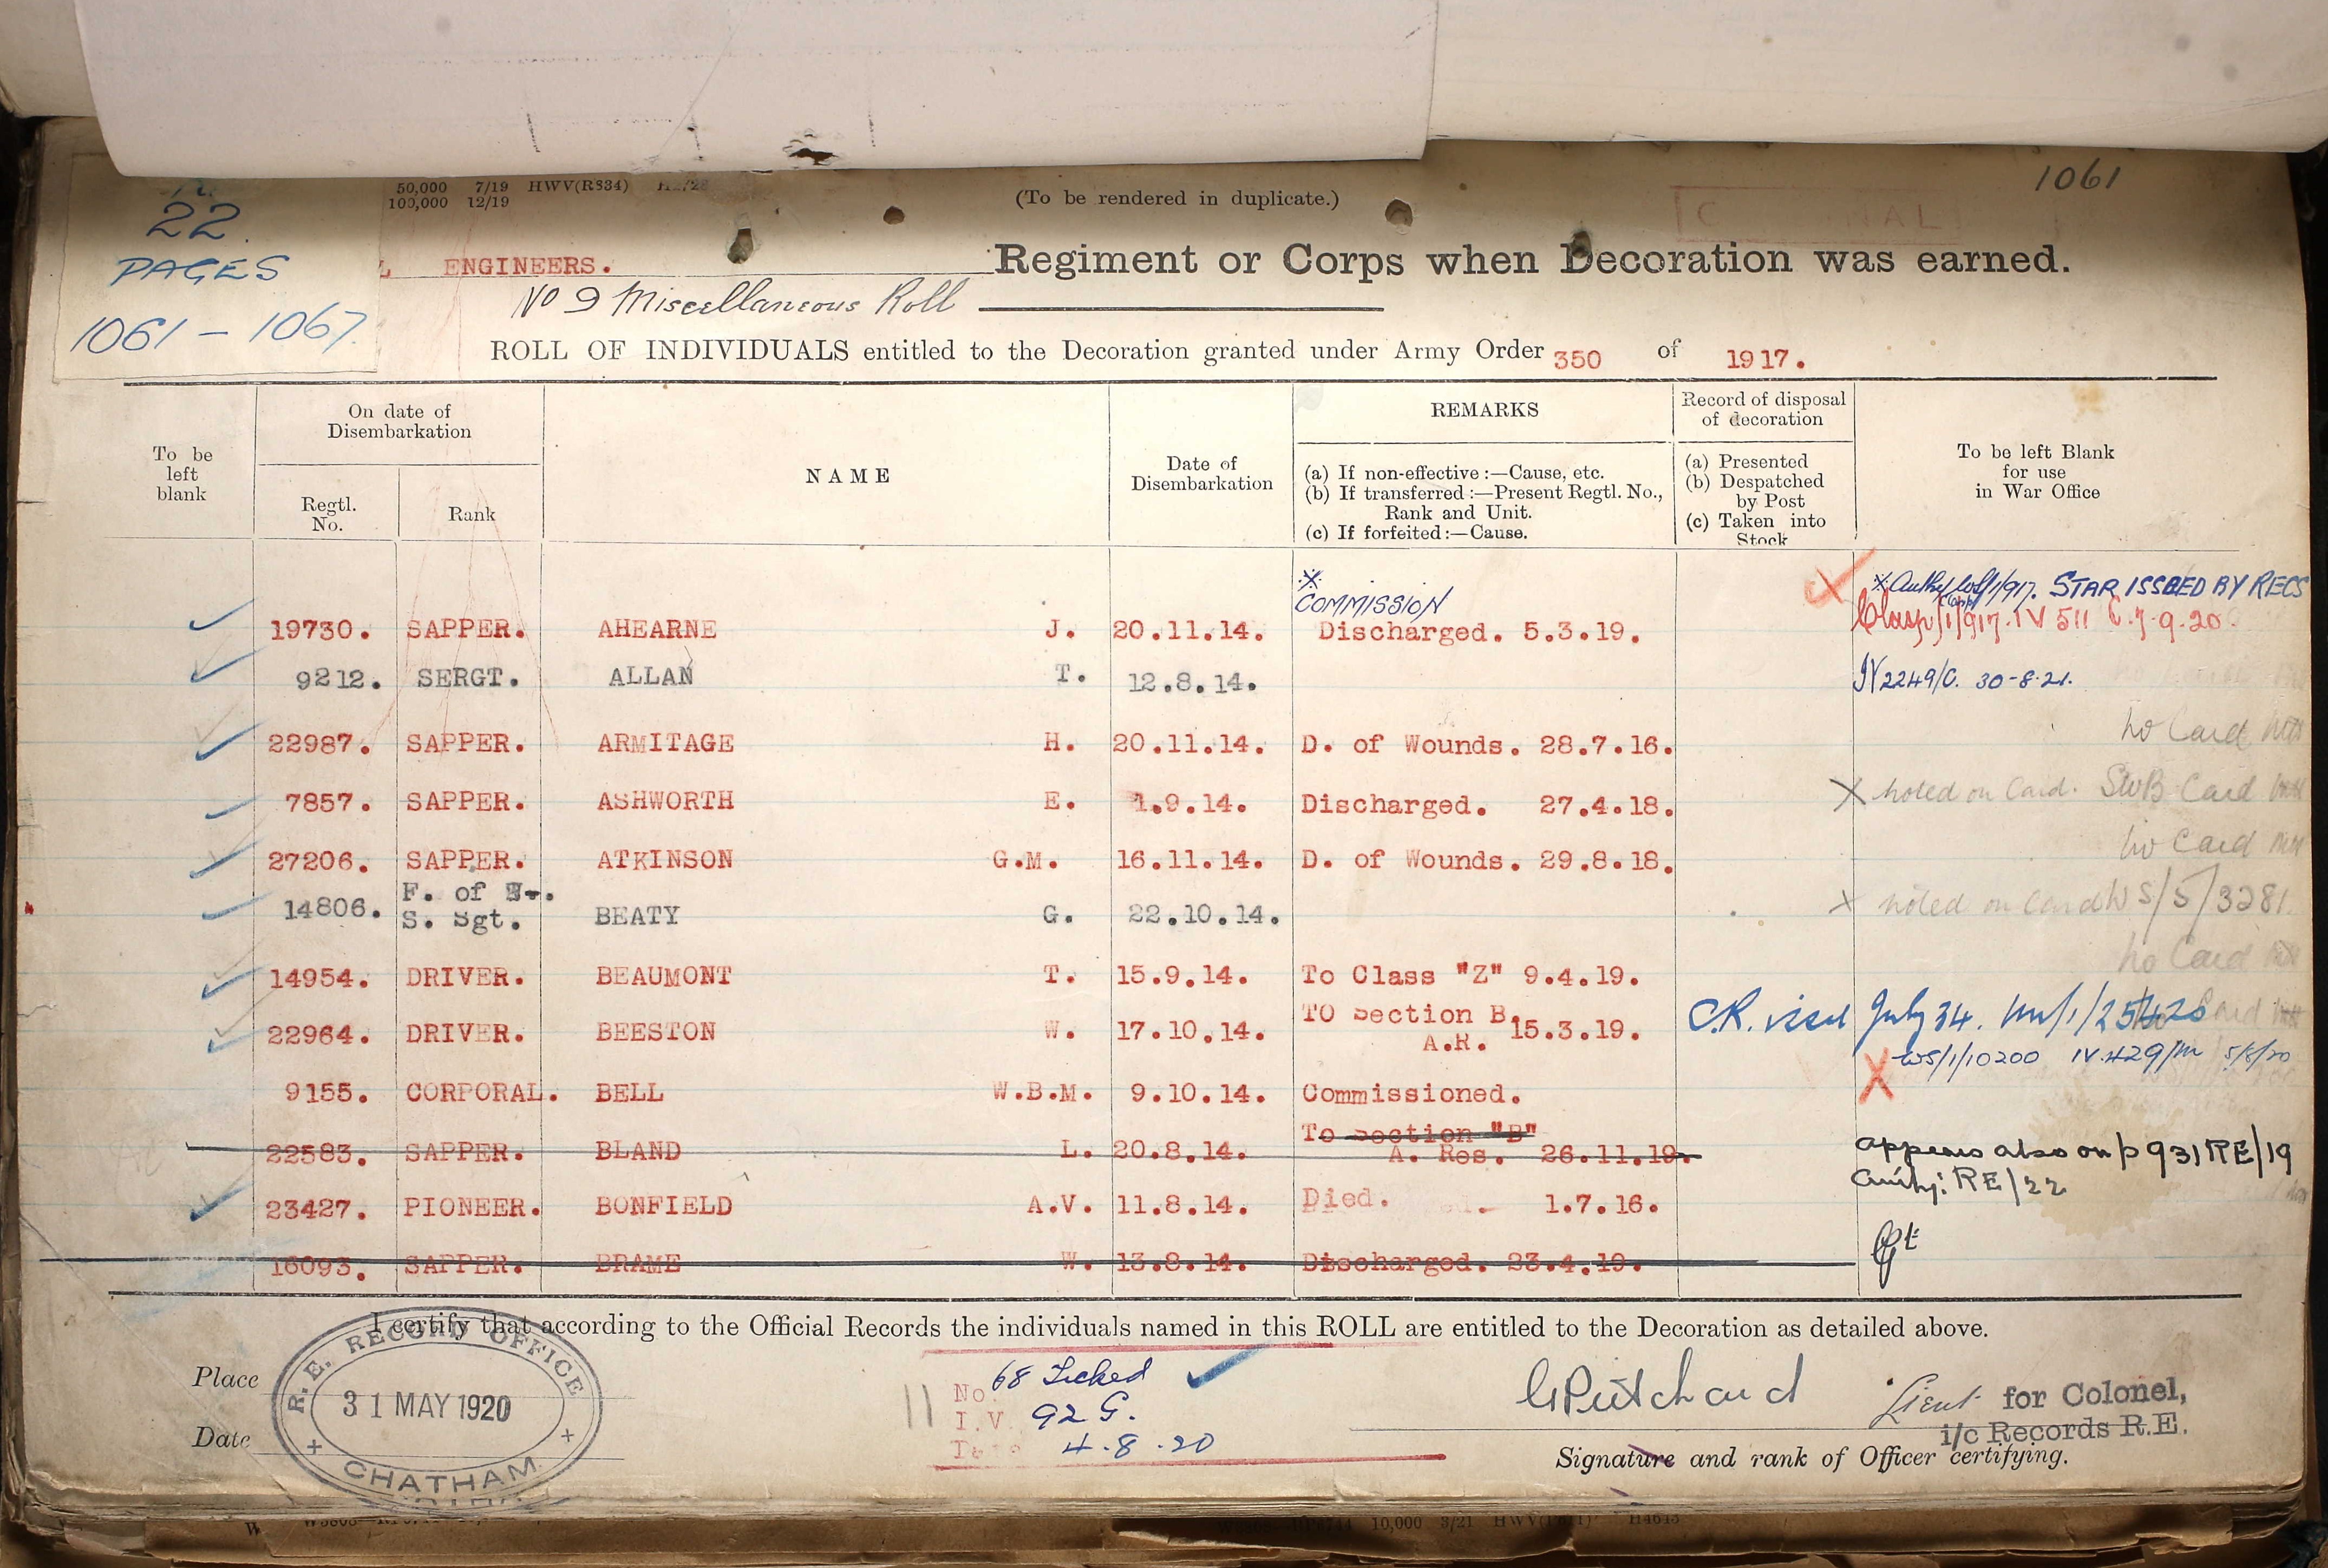 50,000 7/19 HWV(R834)
100,000 12/19
(To be rendered in duplicate.)
1061
22
PAGES
1061 – 1067.
ENGINEERS.
Regiment or Corps when Decoration was earned.
No 9 Miscellaneous Roll
ROLL OF INDIVIDUALS entitled to the Decoration granted under Army Order 350 of 1917.
To be left blank
On date of Disembarkation
Regtl. No.
Rank
NAME
Date of Disembarkation
REMARKS
(a) If non-effective :—Cause, etc.
(b) If transferred :—Present Regtl. No., Rank and Unit.
(c) If forfeited :—Cause.
Record of disposal of decoration
(a) Presented
(b) Despatched by Post
(c) Taken into Stock
To be left Blank for use in War Office
COMMISSION
STAR ISSUED BY RECS
19730. SAPPER. AHEARNE J. 20.11.14. Discharged. 5.3.19. Clasp IV 511 7.9.20.
9212. SERGT. ALLAN T. 12.8.14. IV 2249/C. 30-8-21.
22987. SAPPER. ARMITAGE H. 20.11.14. D. of Wounds. 28.7.16. no Card
7857. SAPPER. ASHWORTH E. 1.9.14. Discharged. 27.4.18. X noted on Card. SWB Card
27206. SAPPER. ATKINSON G.M. 16.11.14. D. of Wounds. 29.8.18. no Card
F. of W.
14806. S. Sgt. BEATY G. 22.10.14. X noted on Card WS/5/3281.
no Card
14954. DRIVER. BEAUMONT T. 15.9.14. To Class "Z" 9.4.19.
22964. DRIVER. BEESTON W. 17.10.14. TO Section B. A.R. 15.3.19. C.R. issd July 34.
WS/1/10200 IV.429/M 5/8/20
9155. CORPORAL. BELL W.B.M. 9.10.14. Commissioned. X
22583. SAPPER. BLAND L. 20.8.14. To Section "B" A. Res. 26.11.19. appears also on p 931 RE/19
Auth: RE/22
23427. PIONEER. BONFIELD A.V. 11.8.14. Died. 1.7.16.
16093. SAPPER. BRAME W. 13.8.14. Discharged. 23.4.19.
I certify that according to the Official Records the individuals named in this ROLL are entitled to the Decoration as detailed above.
Place
Date
R.E. RECORD OFFICE
31 MAY 1920
CHATHAM
No 68 Ticked
I.V. 92 G.
Date 4.8.20
Lieut for Colonel,
i/c Records R.E.
Signature and rank of Officer certifying.
10,000 3/21